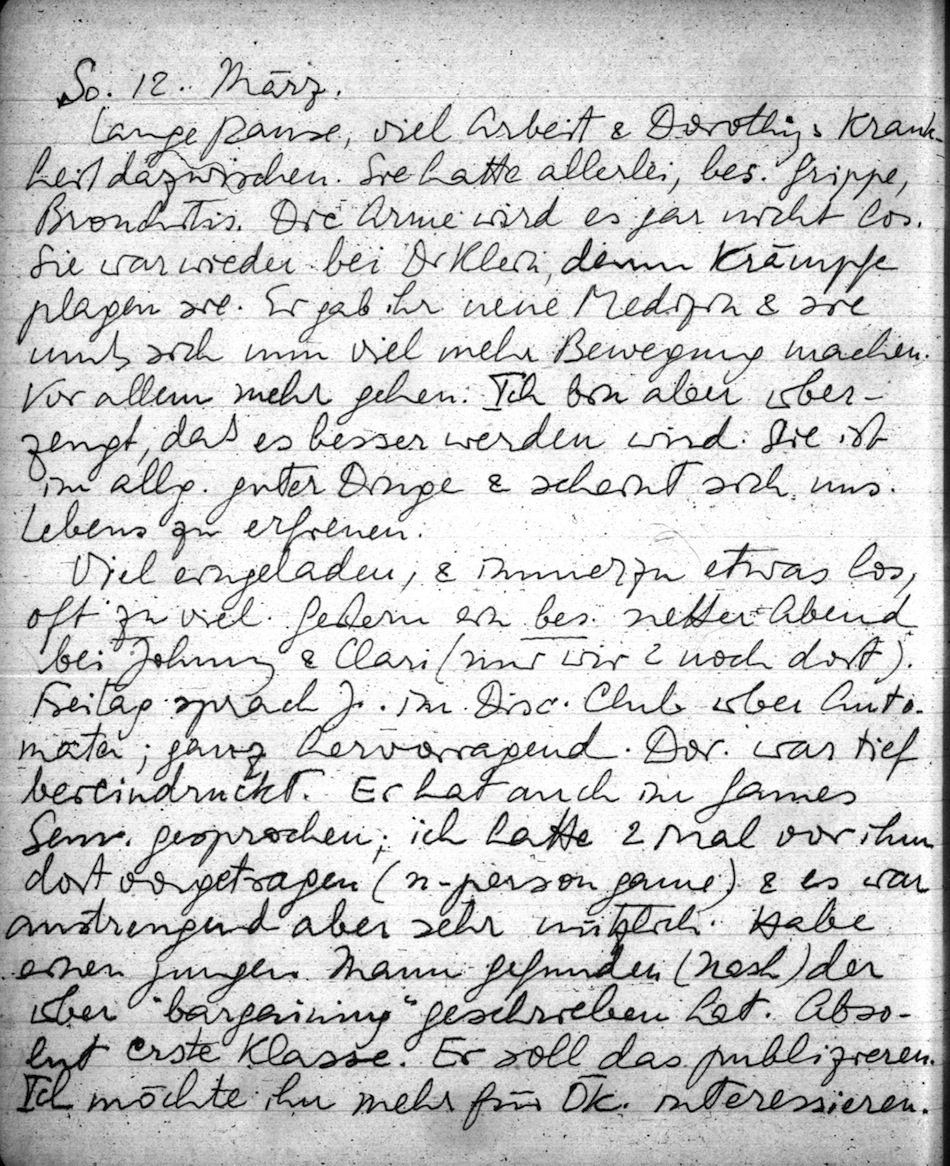 So. 12. März.
Lange Pause, viel Arbeit & Dorothys Krank-
heit dazwischen. Sie hatte allerlei, bes. Grippe,
Bronchitis. Die Arme wird es gar nicht los.
Sie war wieder bei Dr Klein, denn Krämpfe
plagen sie. Er gab ihr neue Medizin & sie
muß sich nun viel mehr Bewegung machen.
Vor allem mehr gehen. Ich bin aber über-
zeugt, daß es besser werden wird. Sie ist
im allg. guter Dinge & scheint sich uns.
Lebens zu erfreuen.
Viel eingeladen, & immerzu etwas los,
oft zu viel. Gestern ein bes. netter Abend
bei Johnny & Clari (nur wir 2 noch dort).
Freitag sprach J. im Disc. Club über Auto-
maten; ganz hervorragend. Dor. war tief
beeindruckt. Er hat auch im Games
Sem. gesprochen; ich hatte 2 Mal vor ihm
dort vorgetragen (n-person game) & es war
anstrengend aber sehr nützlich. Habe
einen jungen Mann gefunden (Nash) der
über "bargaining" geschrieben hat. Abso-
lut erste Klasse. Er soll das publizieren.
Ich möchte ihn mehr für Ök. interessieren.